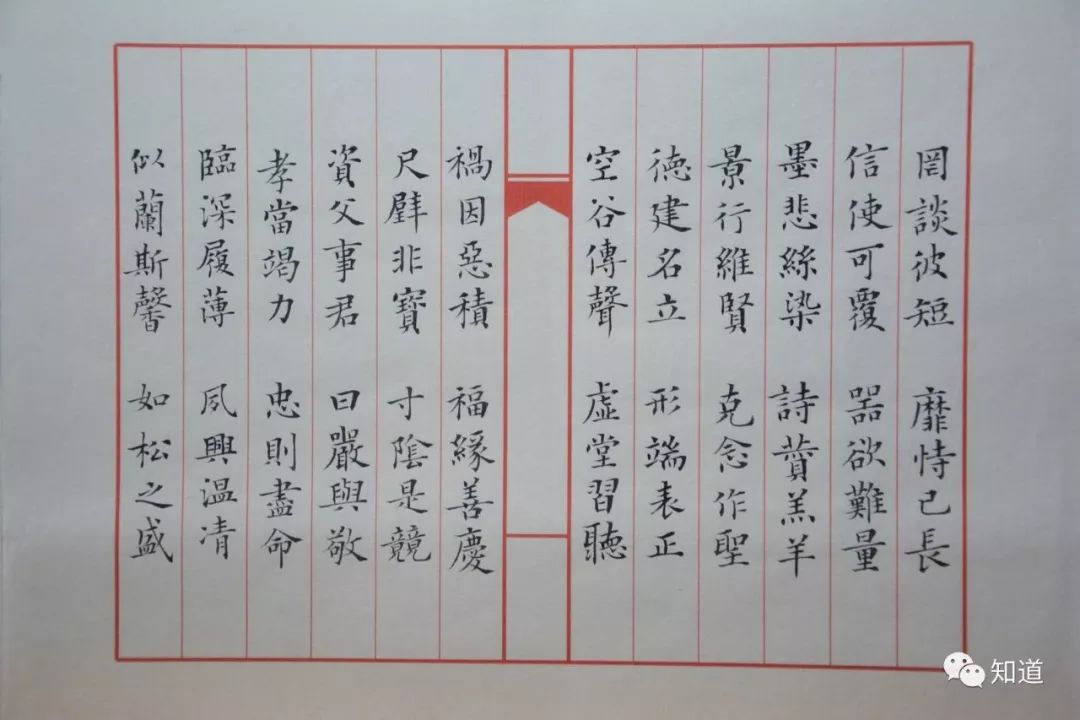 罔談彼短 靡恃己長
信使可覆 器欲難量
墨悲絲染 詩贊羔羊
景行維賢 克念作聖
德建名立 形端表正
空谷傳聲 虛堂習聽
禍因惡積 福緣善慶
尺璧非寶 寸陰是競
資父事君 曰嚴與敬
孝當竭力 忠則盡命
臨深履薄 夙興温凊
似蘭斯馨 如松之盛
知道